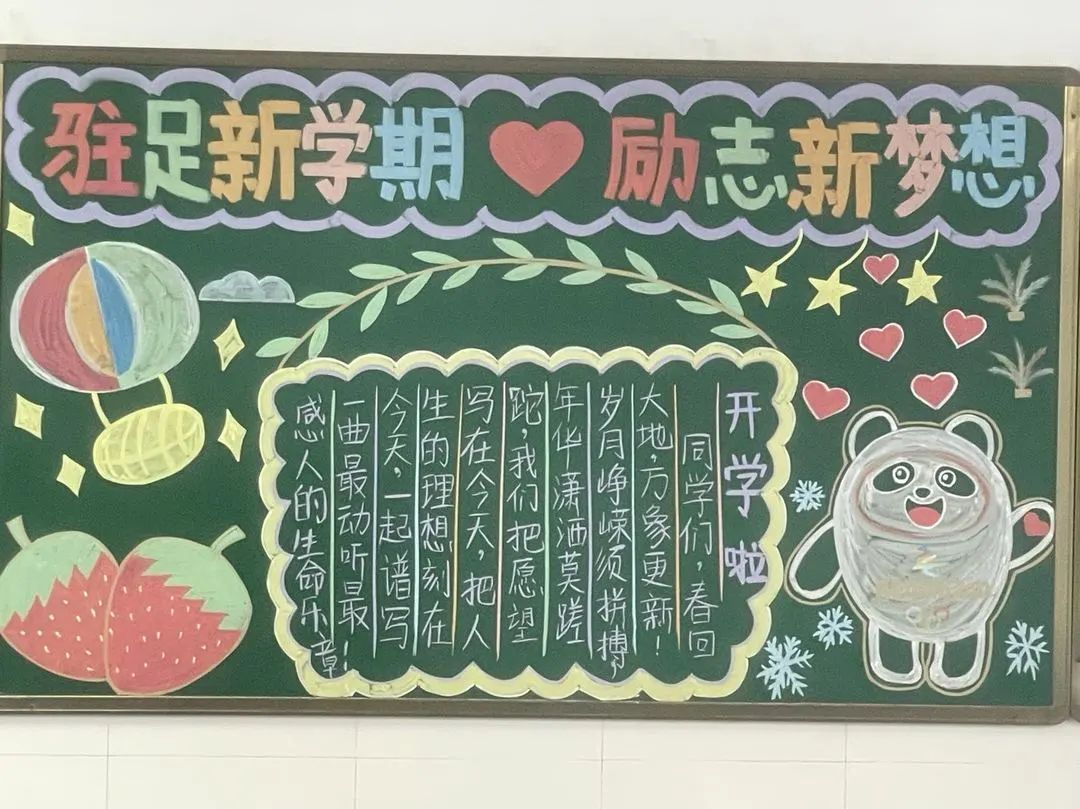 驻足新学期 励志新梦想
开学啦
同学们，春回
大地，万象更新！
岁月峥嵘须拼搏，
年华潇洒莫蹉
跎，我们把愿望
写在今天，把人
生的理想刻在
今天，一起谱写
一曲最动听最
感人的生命乐章！